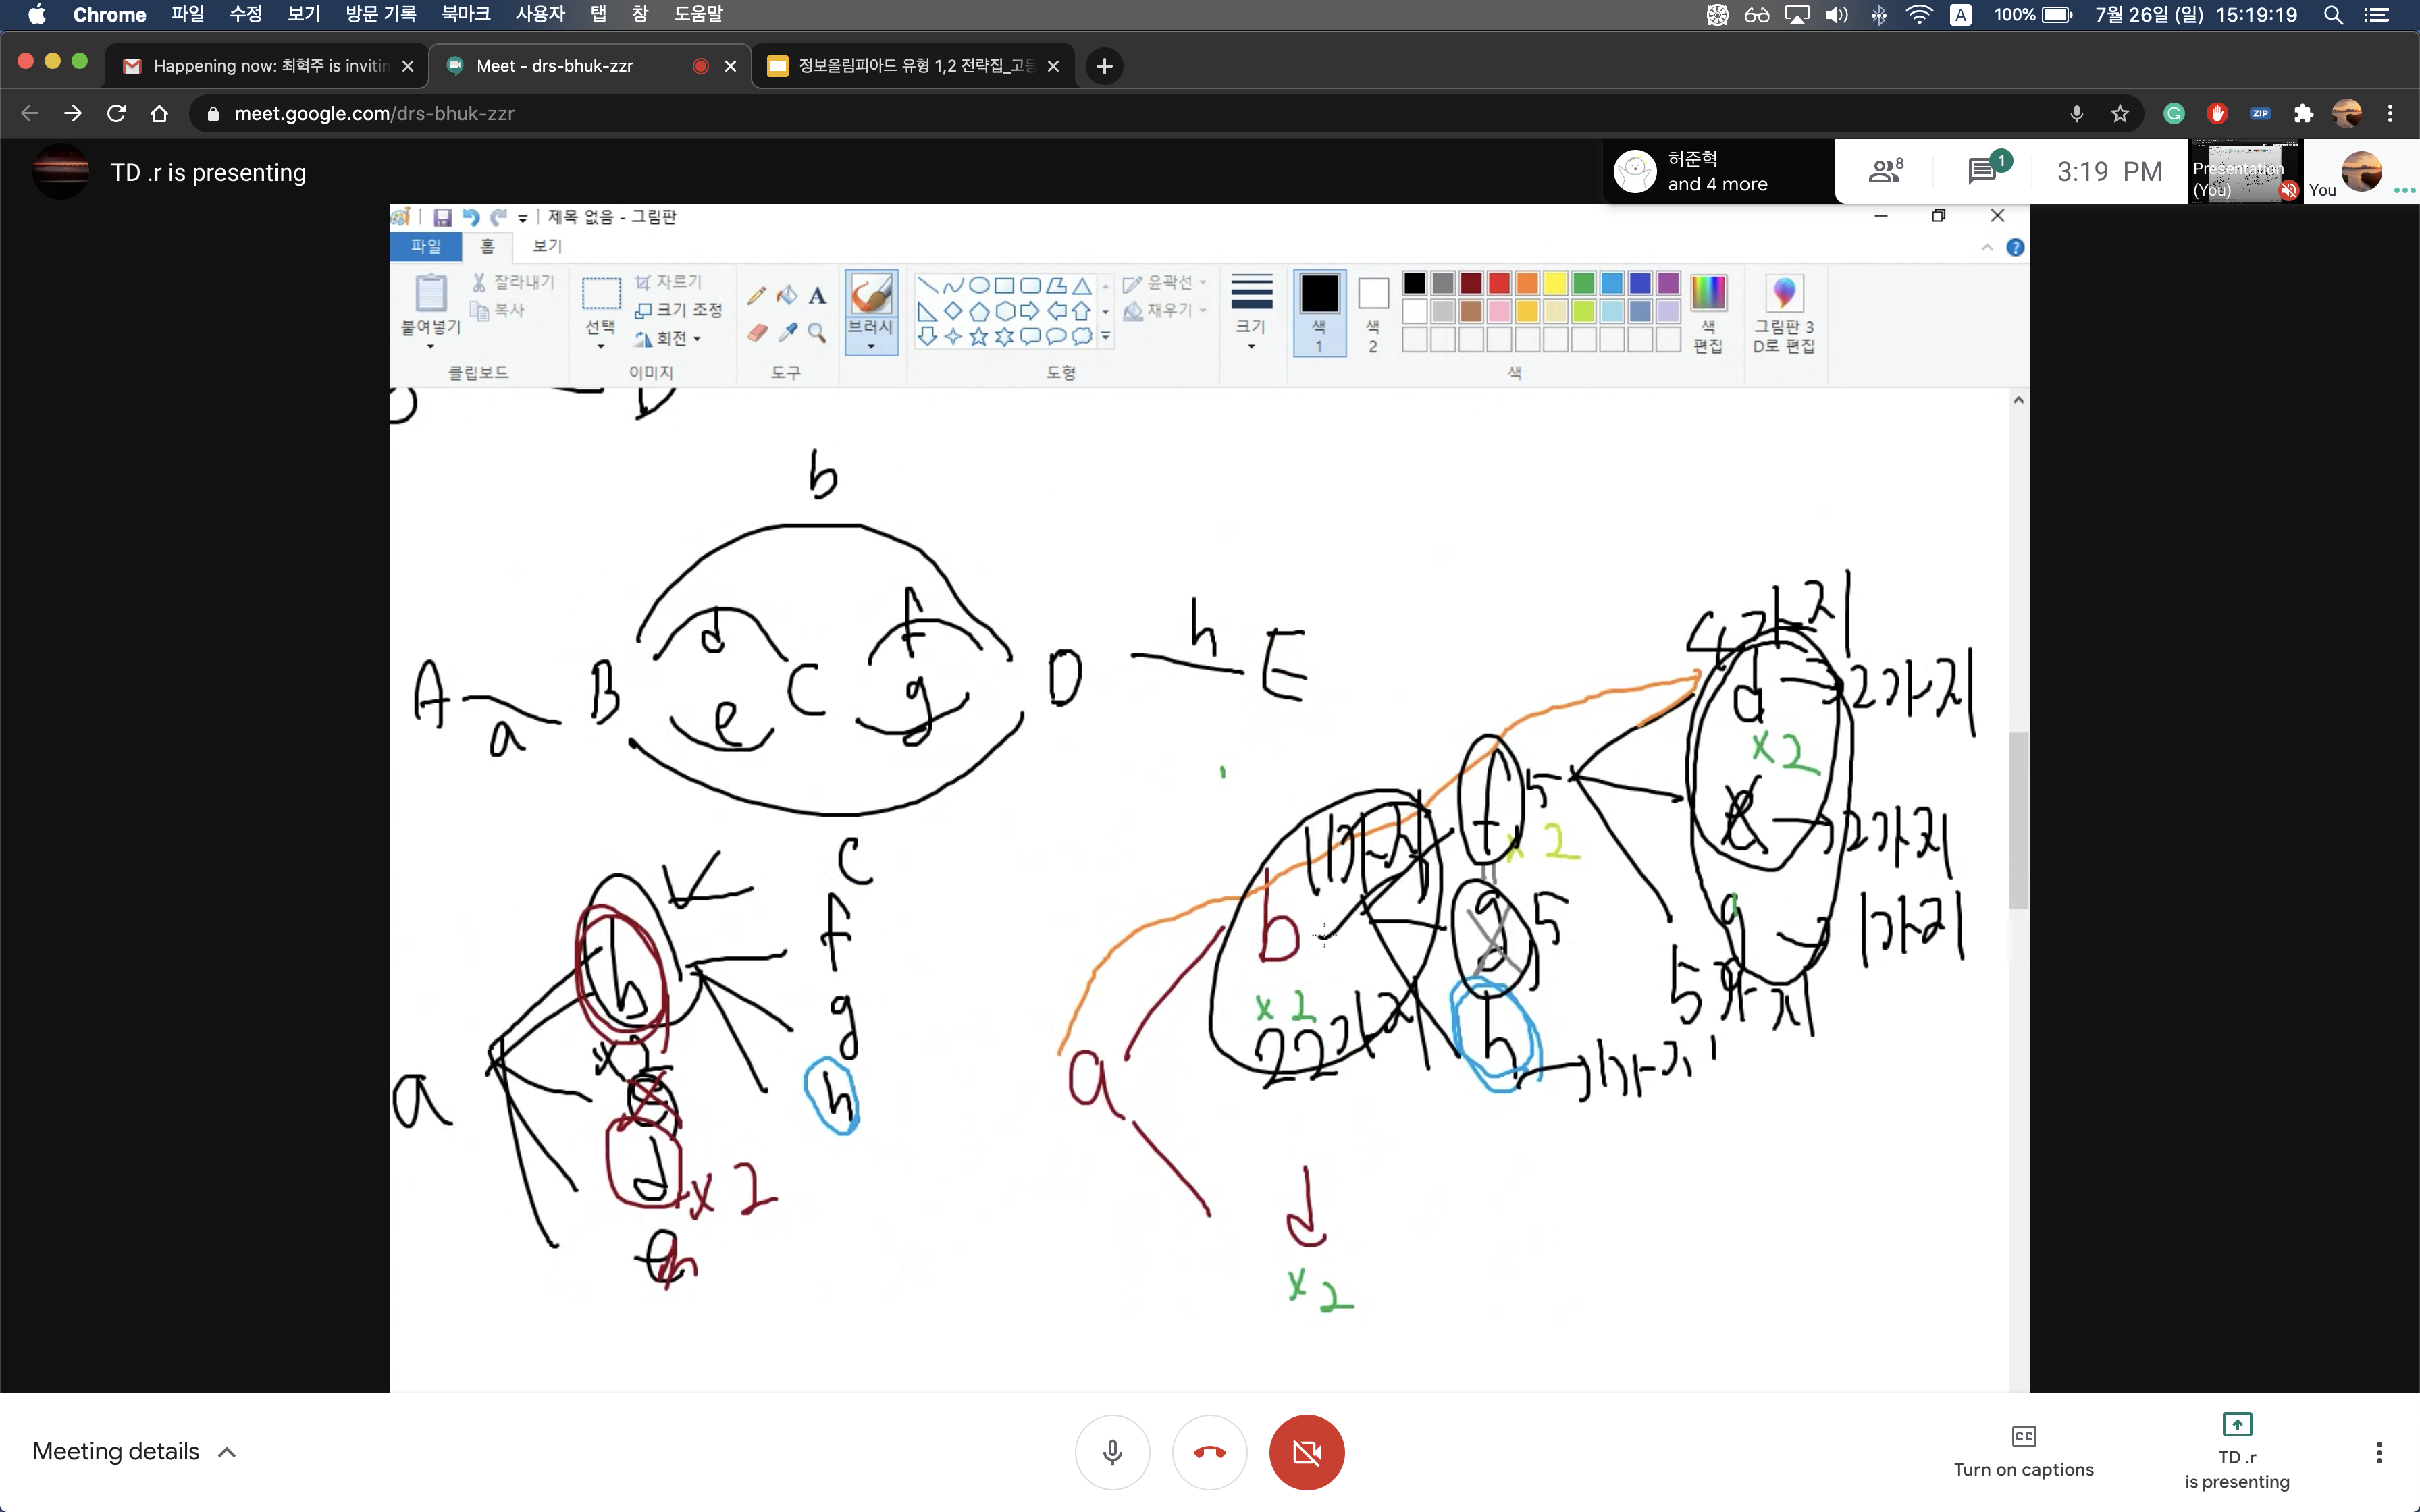 Chrome 파일 수정 보기 방문 기록 북마크 사용자 탭 창 도움말
A 100% 7월 26일 (일) 15:19:19
Happening now: 최혁주 is invitin
Meet - drs-bhuk-zzr
정보올림피아드 유형 1,2 전략집_고등
meet.google.com/drs-bhuk-zzr
ZIP
TD .r is presenting
허준혁
and 4 more
8
1
3:19 PM
Presentation
(You)
You
제목 없음 - 그림판
파일 홈 보기
붙여넣기
잘라내기
복사
클립보드
선택
자르기
크기 조정
회전
이미지
A
도구
브러시
윤곽선
채우기
도형
크기
색
1
색
2
색
편집
색
그림판 3
D로 편집
D
b
d
f
h
A
B
C
D
E
e
g
a
c
f
g
h
b
a
d
x 2
h
4가지
d
2가지
x 2
e
2가지
g
1가지
5가지
f
5
x 2
g
5
h
1가지
11가지
b
x 2
22가지
a
d
x 2
Meeting details
Turn on captions
TD .r
is presenting